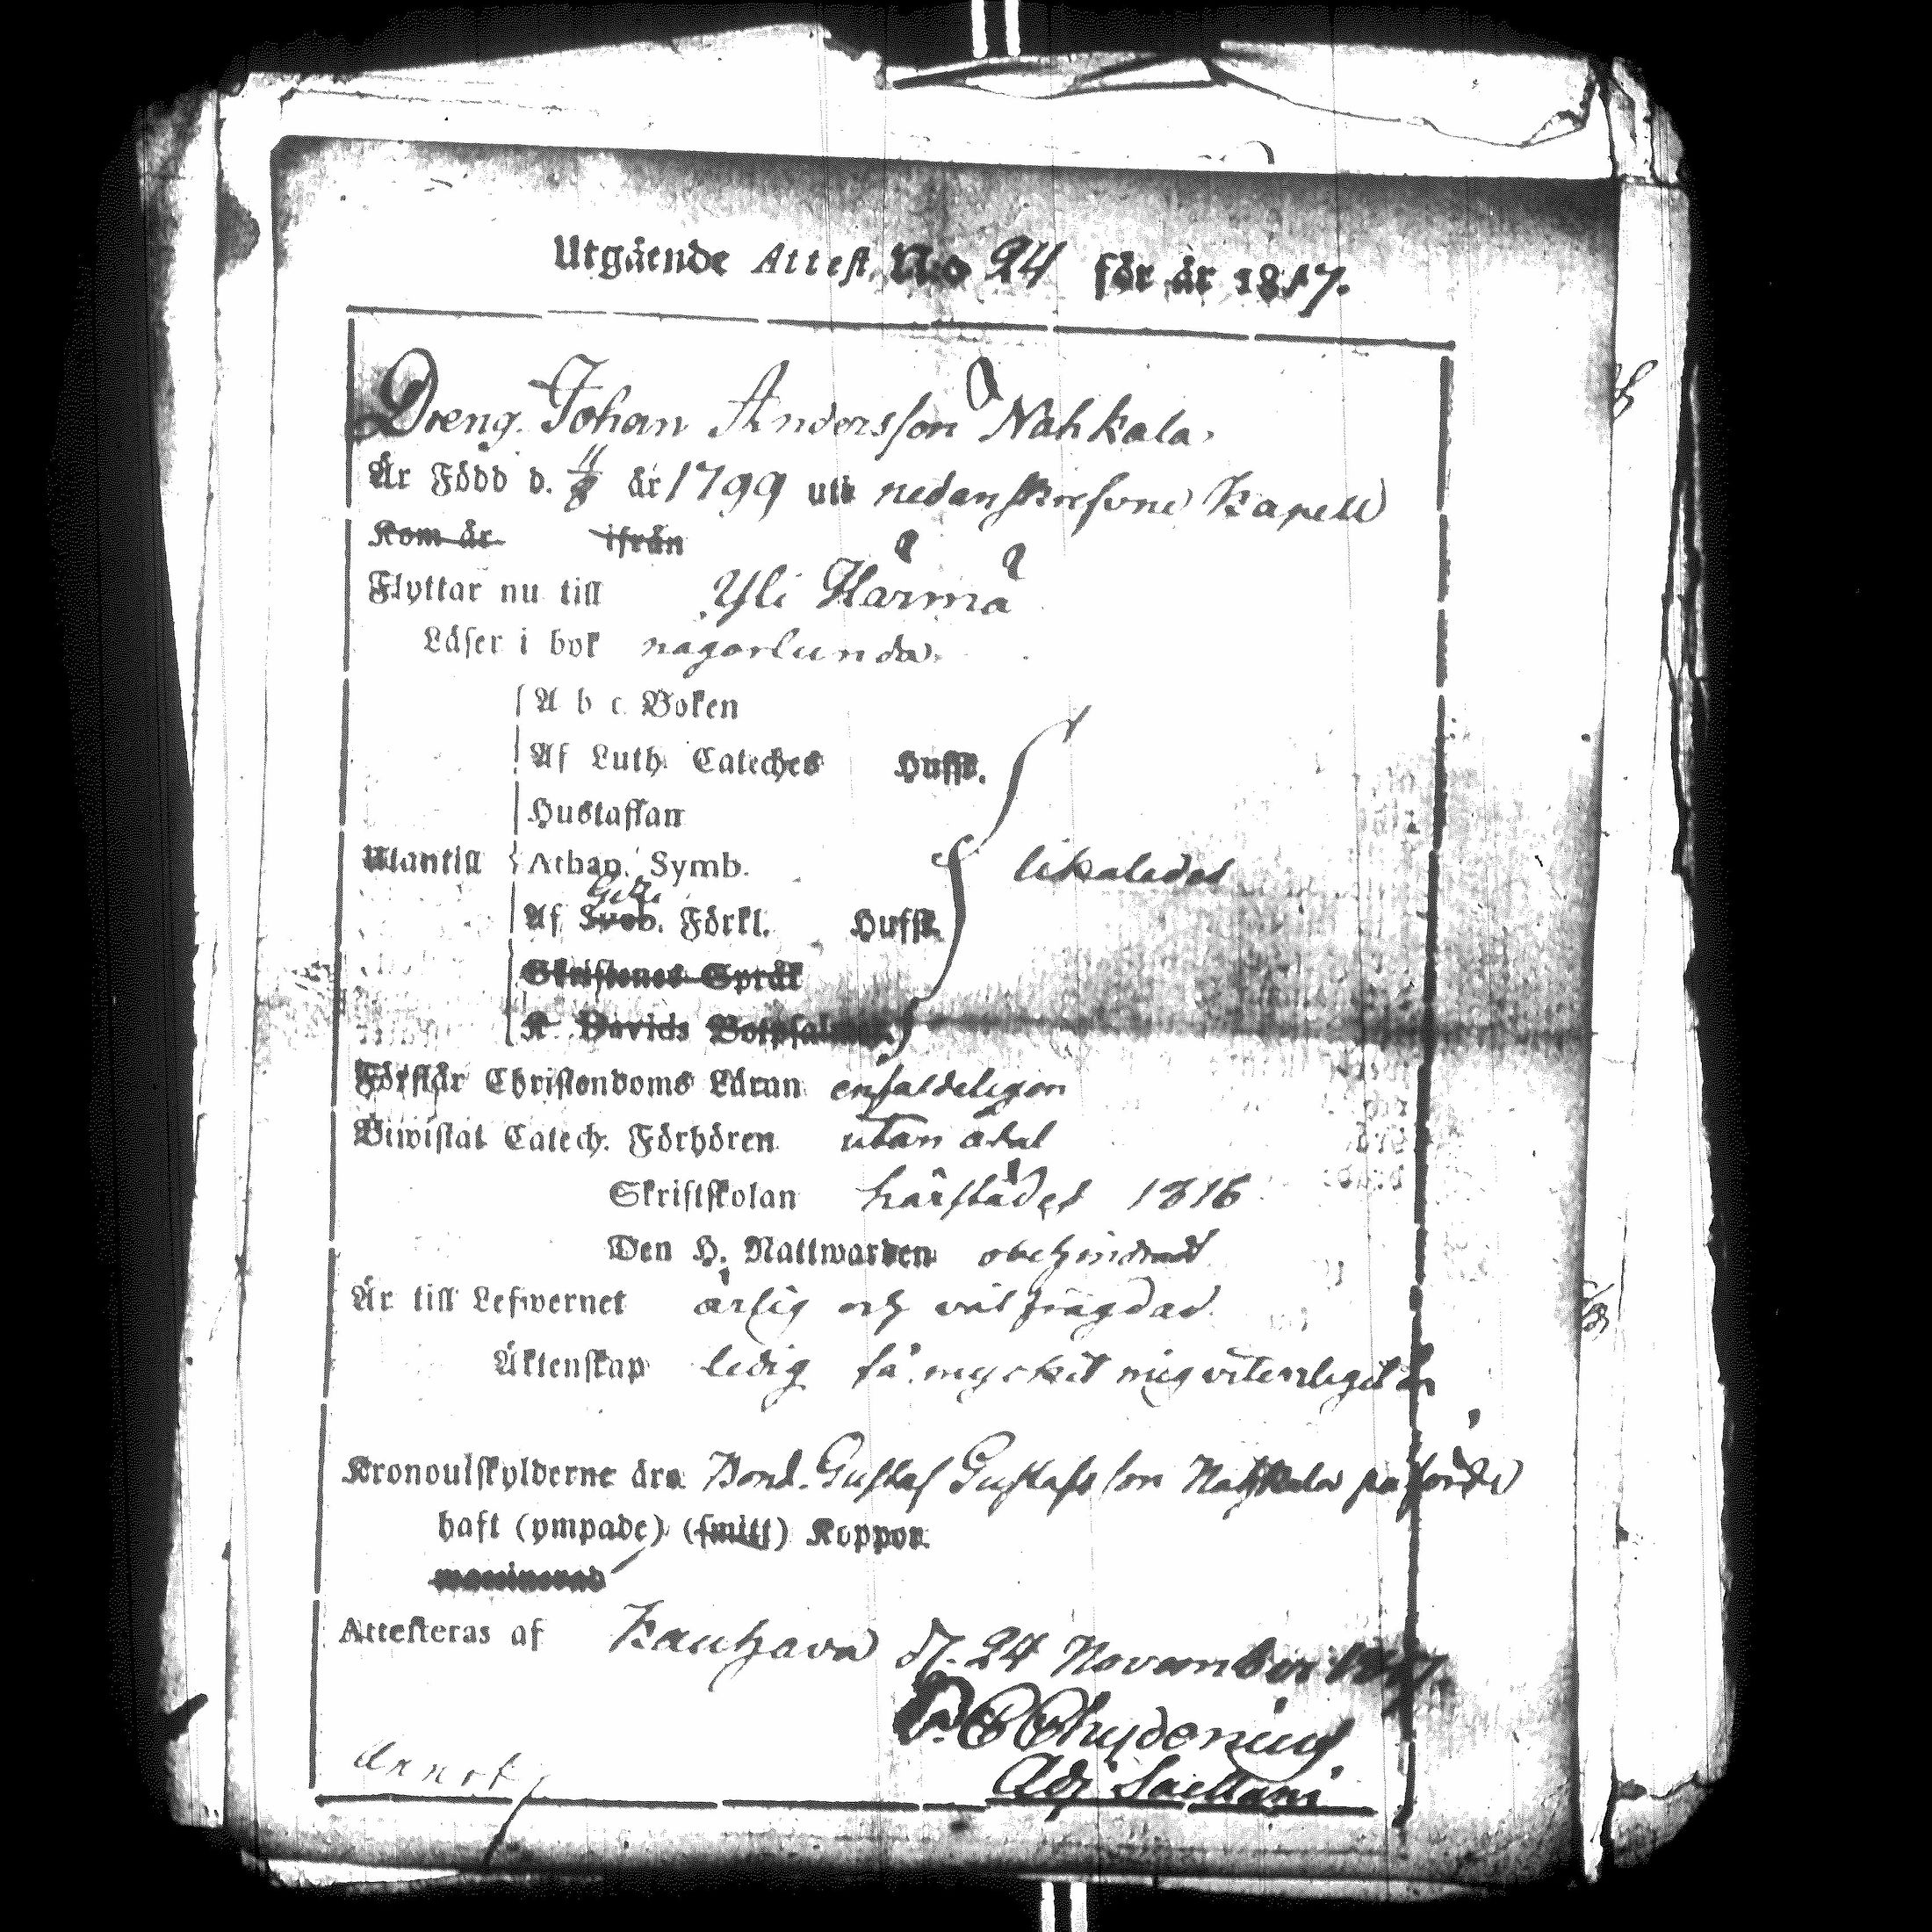 Utgående Attest. N:o 24 för år 1817.
Dreng. Johan Andersson Nahkala.
Är Född d. 11/8 år 1799 uti nedanskrefvne Kapell
Kom år ifrån
Flyttar nu till Yli Härmä
Läser i bok någorlunda.
A b c Boken
Af Luth. Cateches Hufst.
Hustaflan
Utantill Athan. Symb. likaledes
Af Sveb. Förkl. Hufst.
Skriftenes Språk
K. Davids Botpsalmer
Förstår Christendoms Läran enfaldeligen
Biwistat Catech. Förhören utan åtal
Skriftskolan härstädes 1816
Den H. Nattwarden obehindradt
Är till Lefwernet ärlig och väl frägdad
Äktenskap ledig så mycket mig veterligit är
Kronoutskylderne äro Bond. Gustaf Gustafsson Nahkala påförde
haft (ympade) (smitt) Koppor.
Attesteras af Kauhava d. 24 November 1817.
Chydenius
Adj. Sacellani